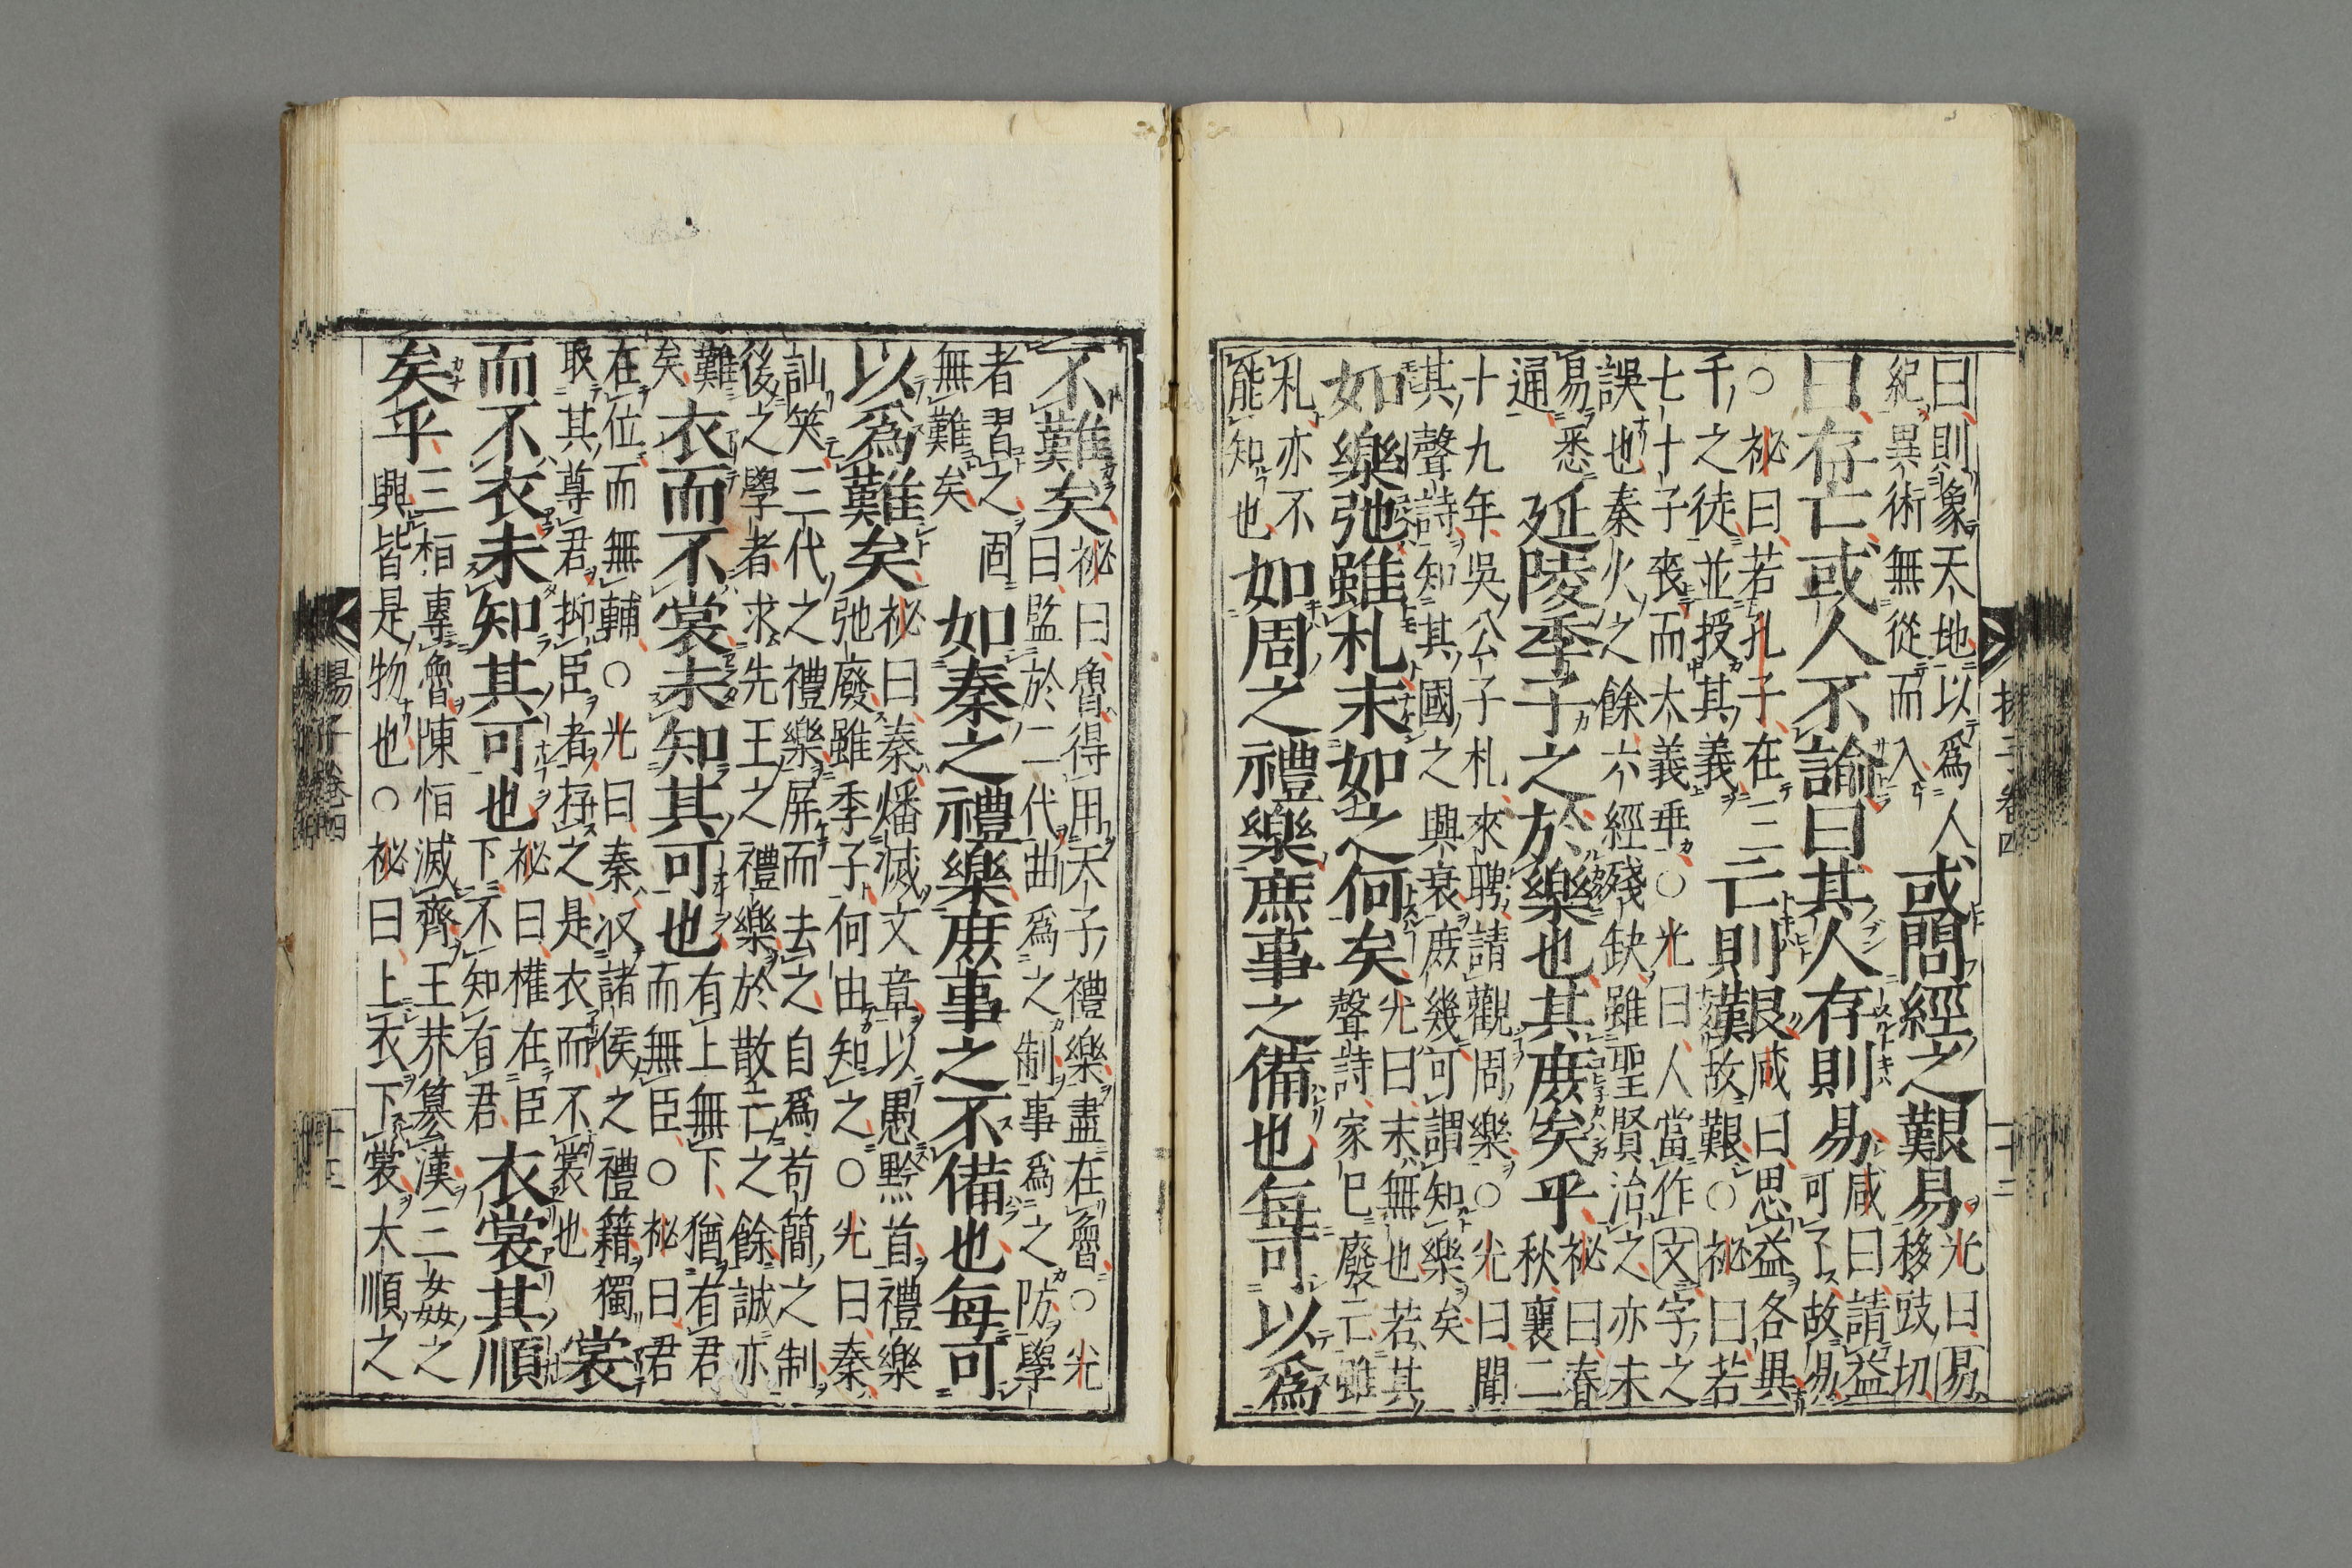 曰則象天地以爲人
紀異術無從而入
或問經之艱易
光曰易
移豉切
曰存亡或人不諭曰其人存則易
咸曰請益
可了故易
○祕曰若孔子在三
千之徒並授其義
亡則艱
咸曰思益各異
難故艱○祕曰若
七十子喪而大義乖○光曰人當作文字之
誤也秦火之餘六經殘缺雖聖賢治之亦未
易悉
通
延陵季子之於樂也其庶矣乎
祕曰春
秋襄二
十九年吳公子札來聘請觀周樂○光曰聞
其聲詩知其國之興衰庶幾可謂知樂矣
如樂弛雖札末如之何矣
光曰末無也若其
聲詩家已廢亡雖
札亦不
能知也
如周之禮樂庶事之備也每可以爲
不難矣
祕曰魯得用天子禮樂盡在魯○光
曰監於二代曲爲之制事爲之防學
者習之固
無難矣
如秦之禮樂庶事之不備也每可
以爲難矣
祕曰秦燔滅文章以愚黔首禮樂
弛廢雖季子何由知之○光曰秦
訕笑三代之禮樂屏而去之自爲苟簡之制
後之學者求先王之禮樂於散亡之餘誠亦
難
矣
衣而不裳未知其可也
有上無下猶有君
而無臣○祕曰君
在位而無輔○光曰秦收諸侯之禮籍獨
取其尊君抑臣者存之是衣而不裳也
裳
而不衣未知其可也
祕曰權在臣
下不知有君
衣裳其順
矣乎
三桓專魯陳恒滅齊王莽篡漢三姦之
興皆是物也○祕曰上衣下裳大順之
揚子卷四
十二